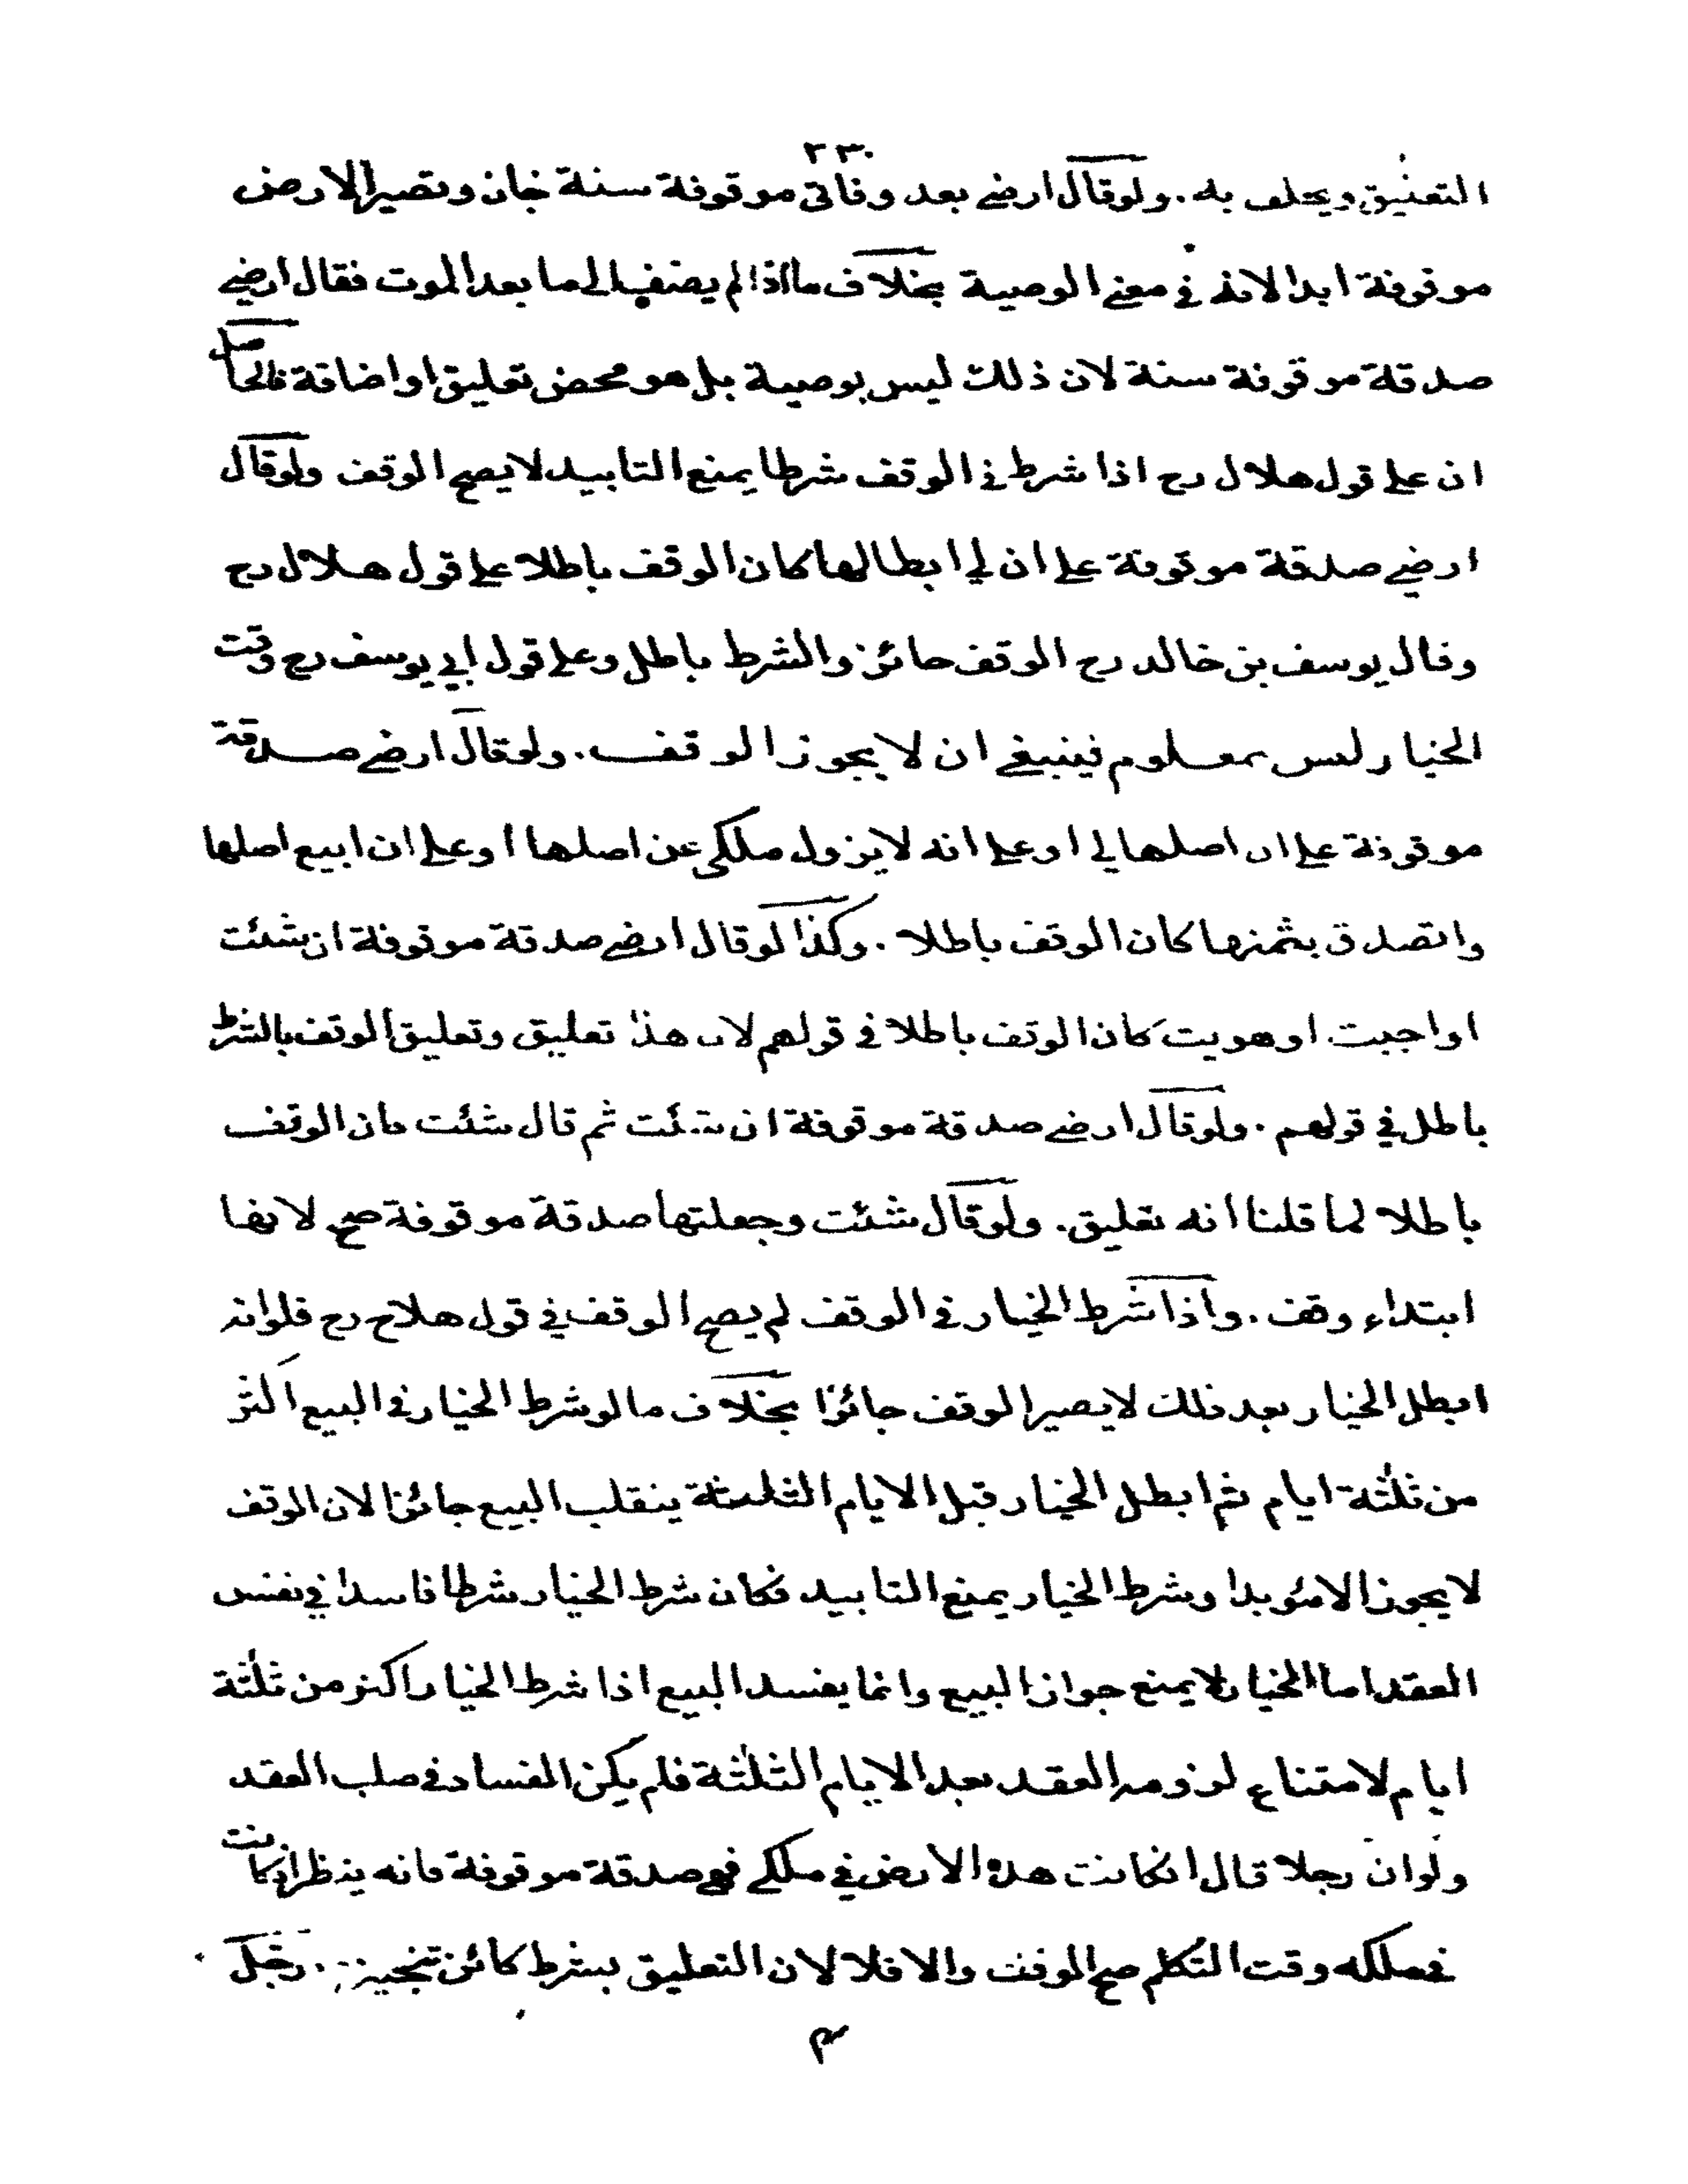 ٢٣٠
التعليق ويحلف به . ولو قال ارضي بعد وفاتي موقوفة سنة جان وتصير الارض
موقوفة ابدا لانه في معنى الوصية بخلاف ما اذا لم يضف الى ما بعد الموت فقال ارضي
صدقة موقوفة سنة لان ذلك ليس بوصية بل هو محض تعليق او اضافة فالحاصل
ان على قول هلال رح اذا شرط في الوقف شرطا يمنع التابيد لا يصح الوقف ولو قال
ارضي صدقة موقوفة على ان لي ابطالها كان الوقف باطلا على قول هلال رح
وقال يوسف بن خالد رح الوقف جائز والشرط باطل وعلى قول ابي يوسف رح وقت
الخيار ليس بمعلوم فينبغي ان لا يجوز الوقف . ولو قال ارضي صدقة
موقوفة على ان اصلها لي او على انه لا يزول ملكي عن اصلها او على ان ابيع اصلها
واتصدق بثمنها كان الوقف باطلا . وكذا لو قال ارضي صدقة موقوفة ان شئت
او احببت او هويت كان الوقف باطلا في قولهم لان هذا تعليق وتعليق الوقف بالشرط
باطل في قولهم . ولو قال ارضي صدقة موقوفة ان شئت ثم قال شئت كان الوقف
باطلا لما قلنا انه تعليق . ولو قال شئت وجعلتها صدقة موقوفة صح لانها
ابتداء وقف . واذا شرط الخيار في الوقف لم يصح الوقف في قول هلال رح فلو انه
ابطل الخيار بعد ذلك لا يصير الوقف جائزا بخلاف ما لو شرط الخيار في البيع اكثر
من ثلثة ايام ثم ابطل الخيار قبل الايام الثلثة ينقلب البيع جائزا لان الوقف
لا يجوز الا مؤبدا وشرط الخيار يمنع التابيد فكان شرط الخيار شرطا فاسدا في نفس
العقد اما الخيار لا يمنع جواز البيع وانما يفسد البيع اذا شرط الخيار اكثر من ثلثة
ايام لامتناع لزوم العقد بعد الايام الثلثة فلم يكن الفساد في صلب العقد
ولو ان رجلا قال ان كانت هذه الارض في ملكي فهي صدقة موقوفة فانه ينظر ان كانت
في ملكه وقت التكلم صح الوقف والا فلا لان التعليق بشرط كائن تنجيز . رجل